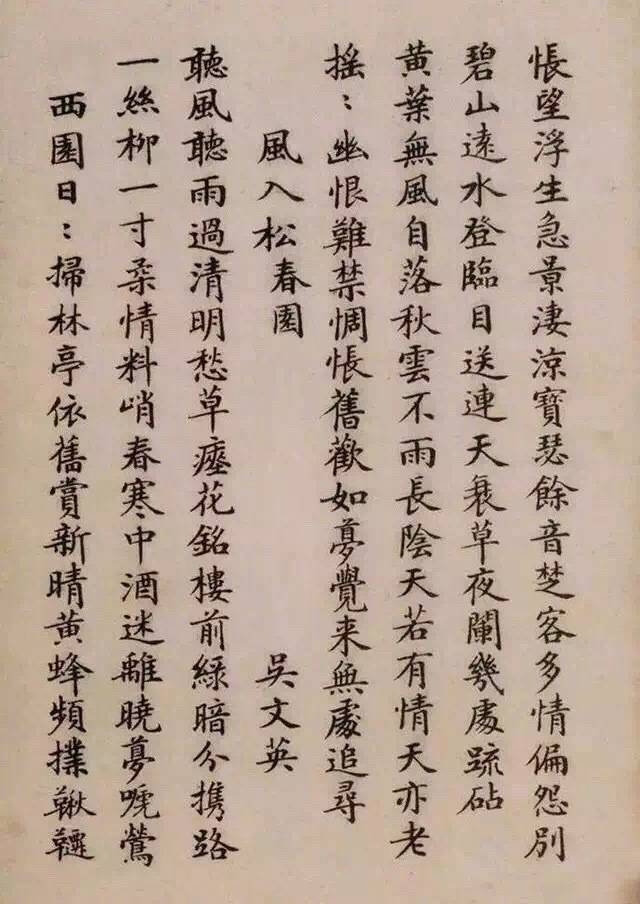 悵望浮生急景淒涼寶瑟餘音楚客多情偏怨別
碧山遠水登臨目送連天衰草夜闌幾處疏砧
黃葉無風自落秋雲不雨長陰天若有情天亦老
搖：幽恨難禁惆悵舊歡如夢覺来無處追尋
風入松春園　吳文英
聽風聽雨過清明愁草瘞花銘樓前綠暗分携路
一絲柳一寸柔情料峭春寒中酒迷離曉夢嗁鶯
西園日：掃林亭依舊賞新晴黃蜂頻撲鞦韆